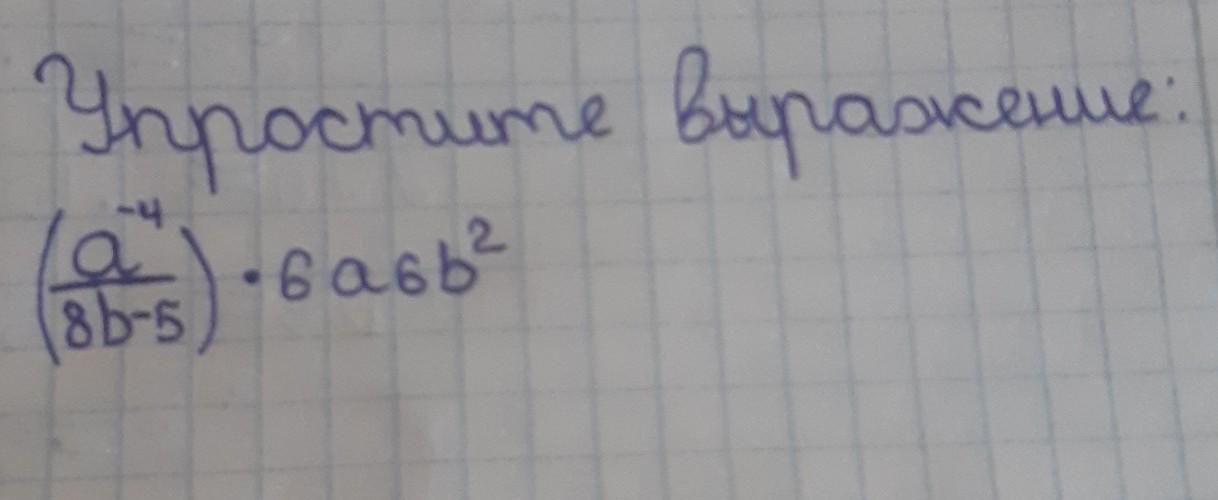 Упростите выражение:
(a⁻⁴/8b-5)·6a6b²